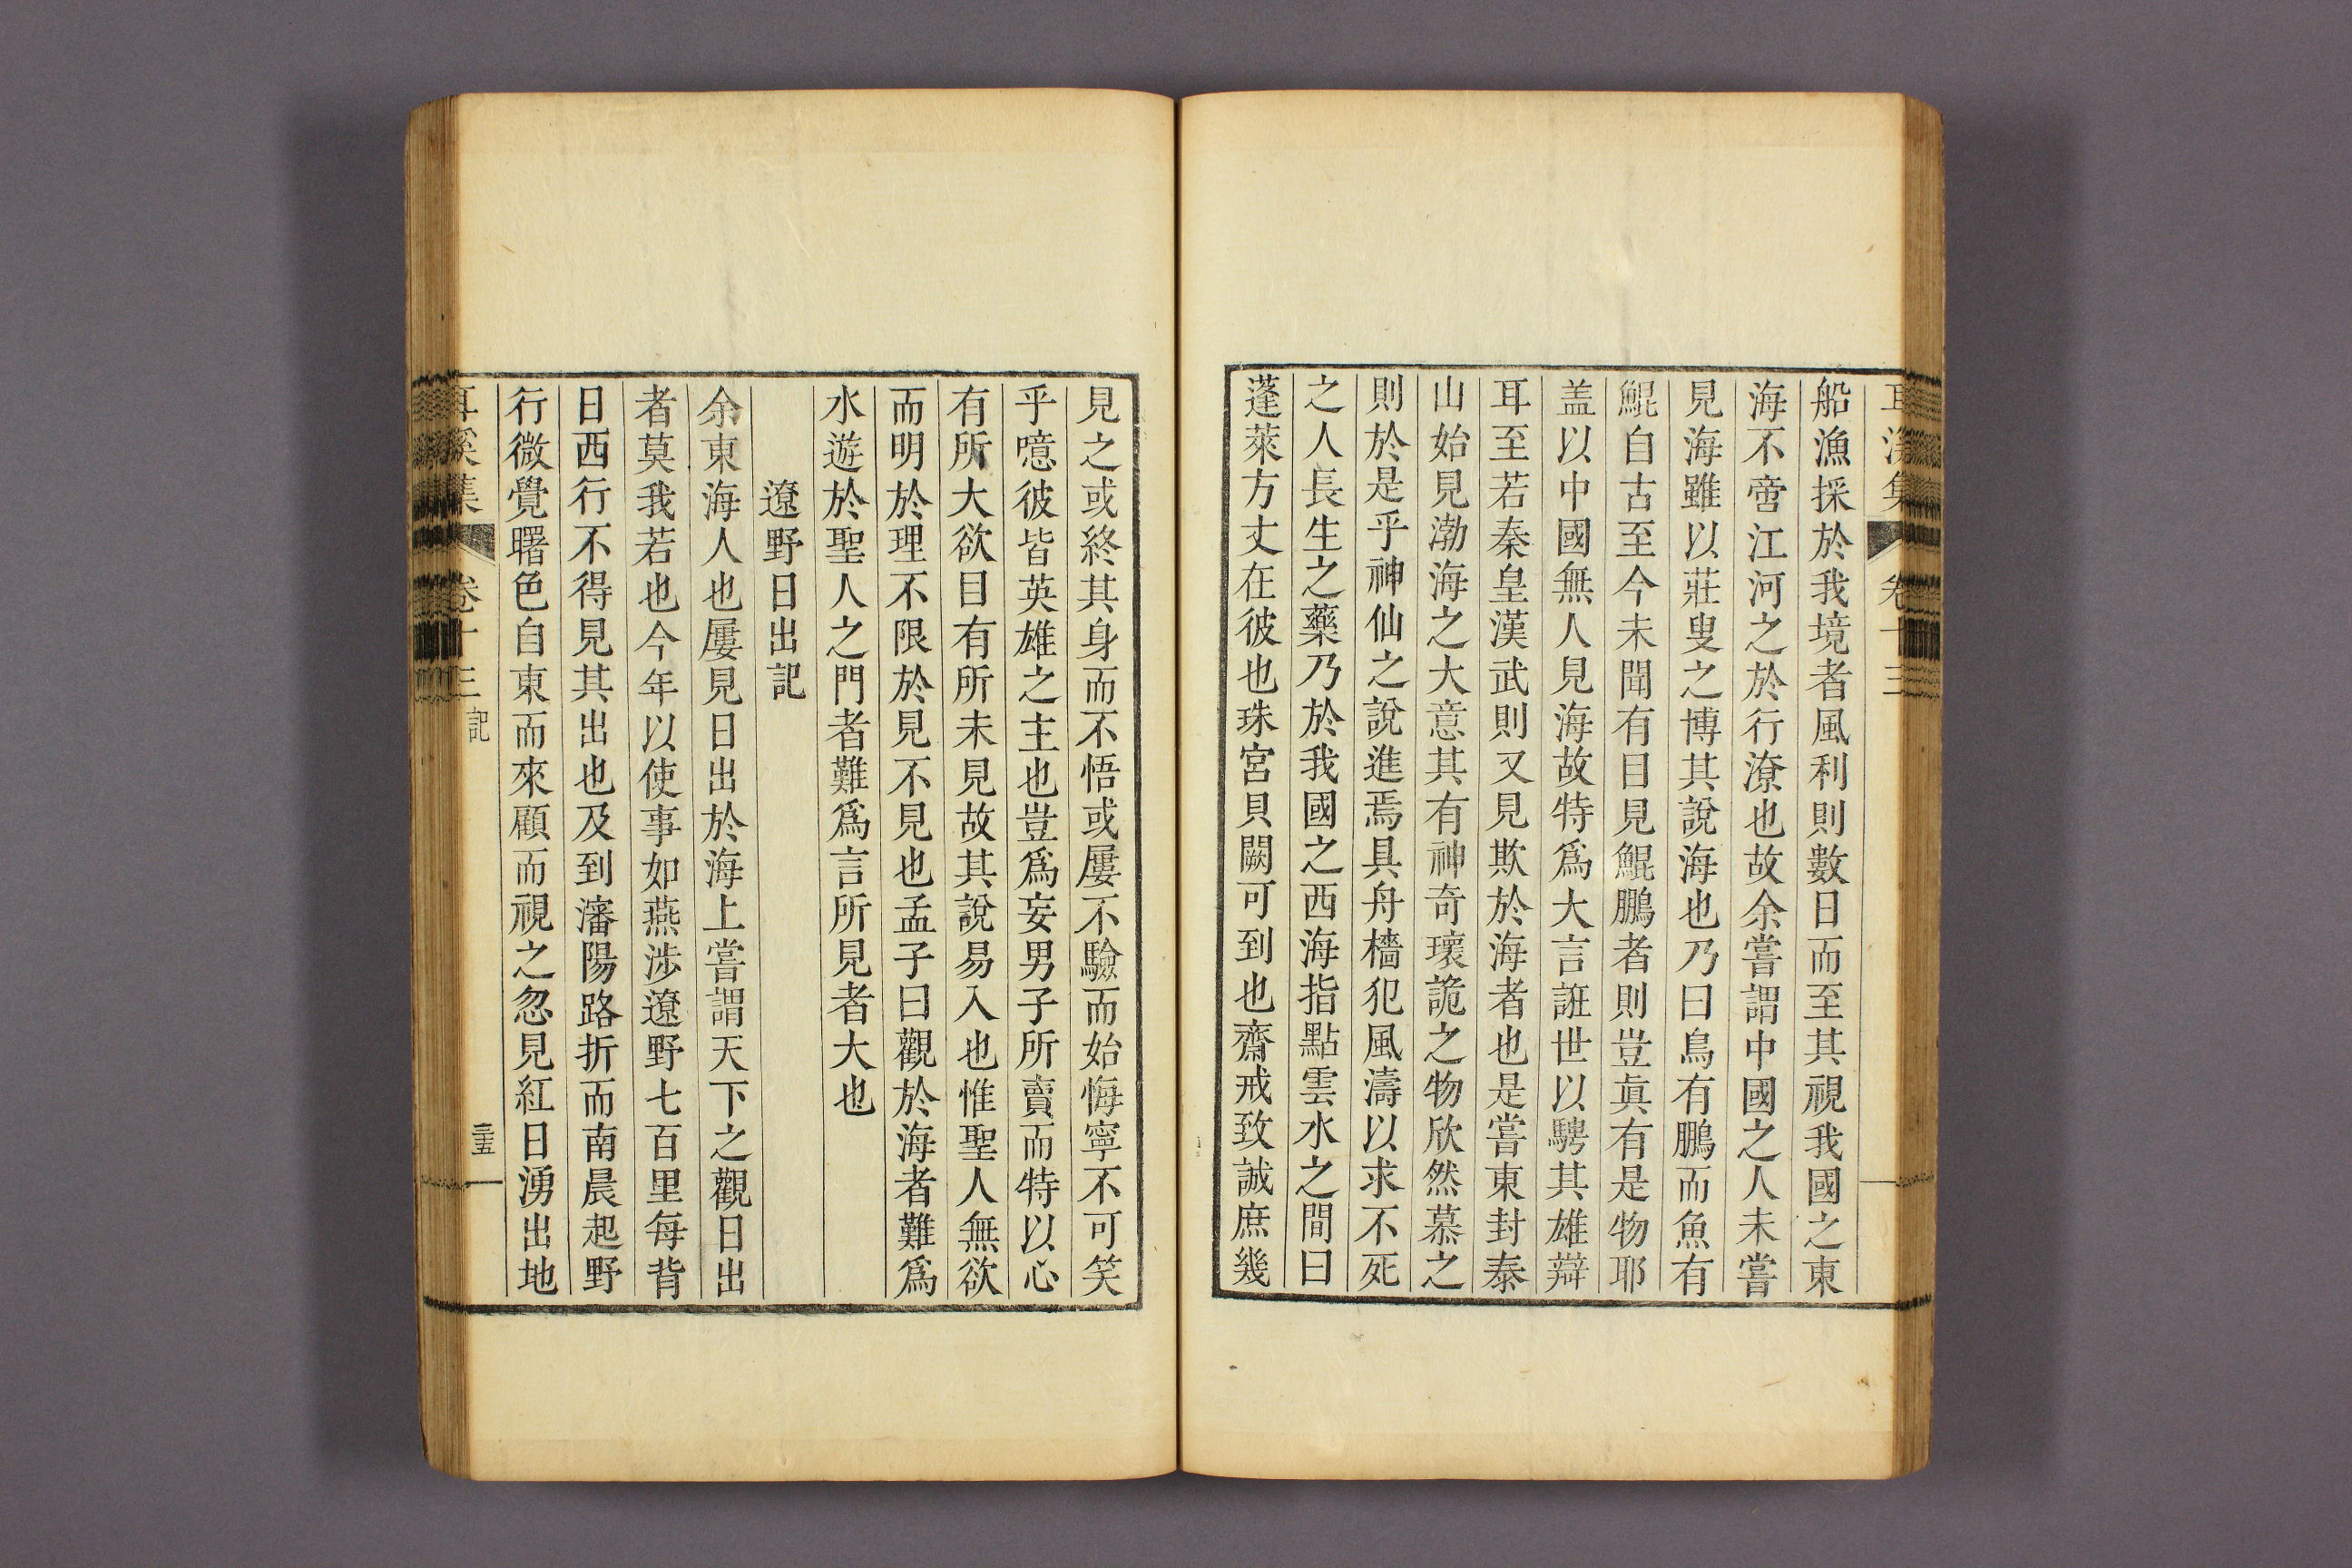 耳溪集 卷十三
船漁採於我境者風利則數日而至其視我國之東
海不啻江河之於行潦也故余嘗謂中國之人未嘗
見海雖以莊叟之博其說海也乃曰鳥有鵬而魚有
鯤自古至今未聞有目見鯤鵬者則豈眞有是物耶
盖以中國無人見海故特爲大言誑世以騁其雄辯
耳至若秦皇漢武則又見欺於海者也是嘗東封泰
山始見渤海之大意其有神奇瓌詭之物欣然慕之
則於是乎神仙之說進焉具舟檣犯風濤以求不死
之人長生之藥乃於我國之西海指點雲水之間曰
蓬萊方丈在彼也珠宮貝闕可到也齋戒致誠庶幾
見之或終其身而不悟或屢不驗而始悔寧不可笑
乎噫彼皆英雄之主也豈爲妄男子所賣而特以心
有所大欲目有所未見故其說易入也惟聖人無欲
而明於理不限於見不見也孟子曰觀於海者難爲
水遊於聖人之門者難爲言所見者大也
遼野日出記
余東海人也屢見日出於海上嘗謂天下之觀日出
者莫我若也今年以使事如燕涉遼野七百里每背
日西行不得見其出也及到瀋陽路折而南晨起野
行微覺曙色自東而來顧而視之忽見紅日湧出地
耳溪集 卷十三 記 三五